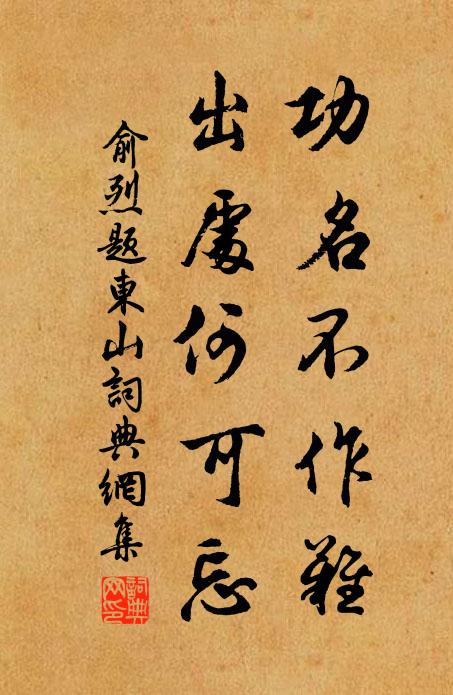 功名不作難
出處何可忘
俞烈題東山詞典網集
詞典
网印